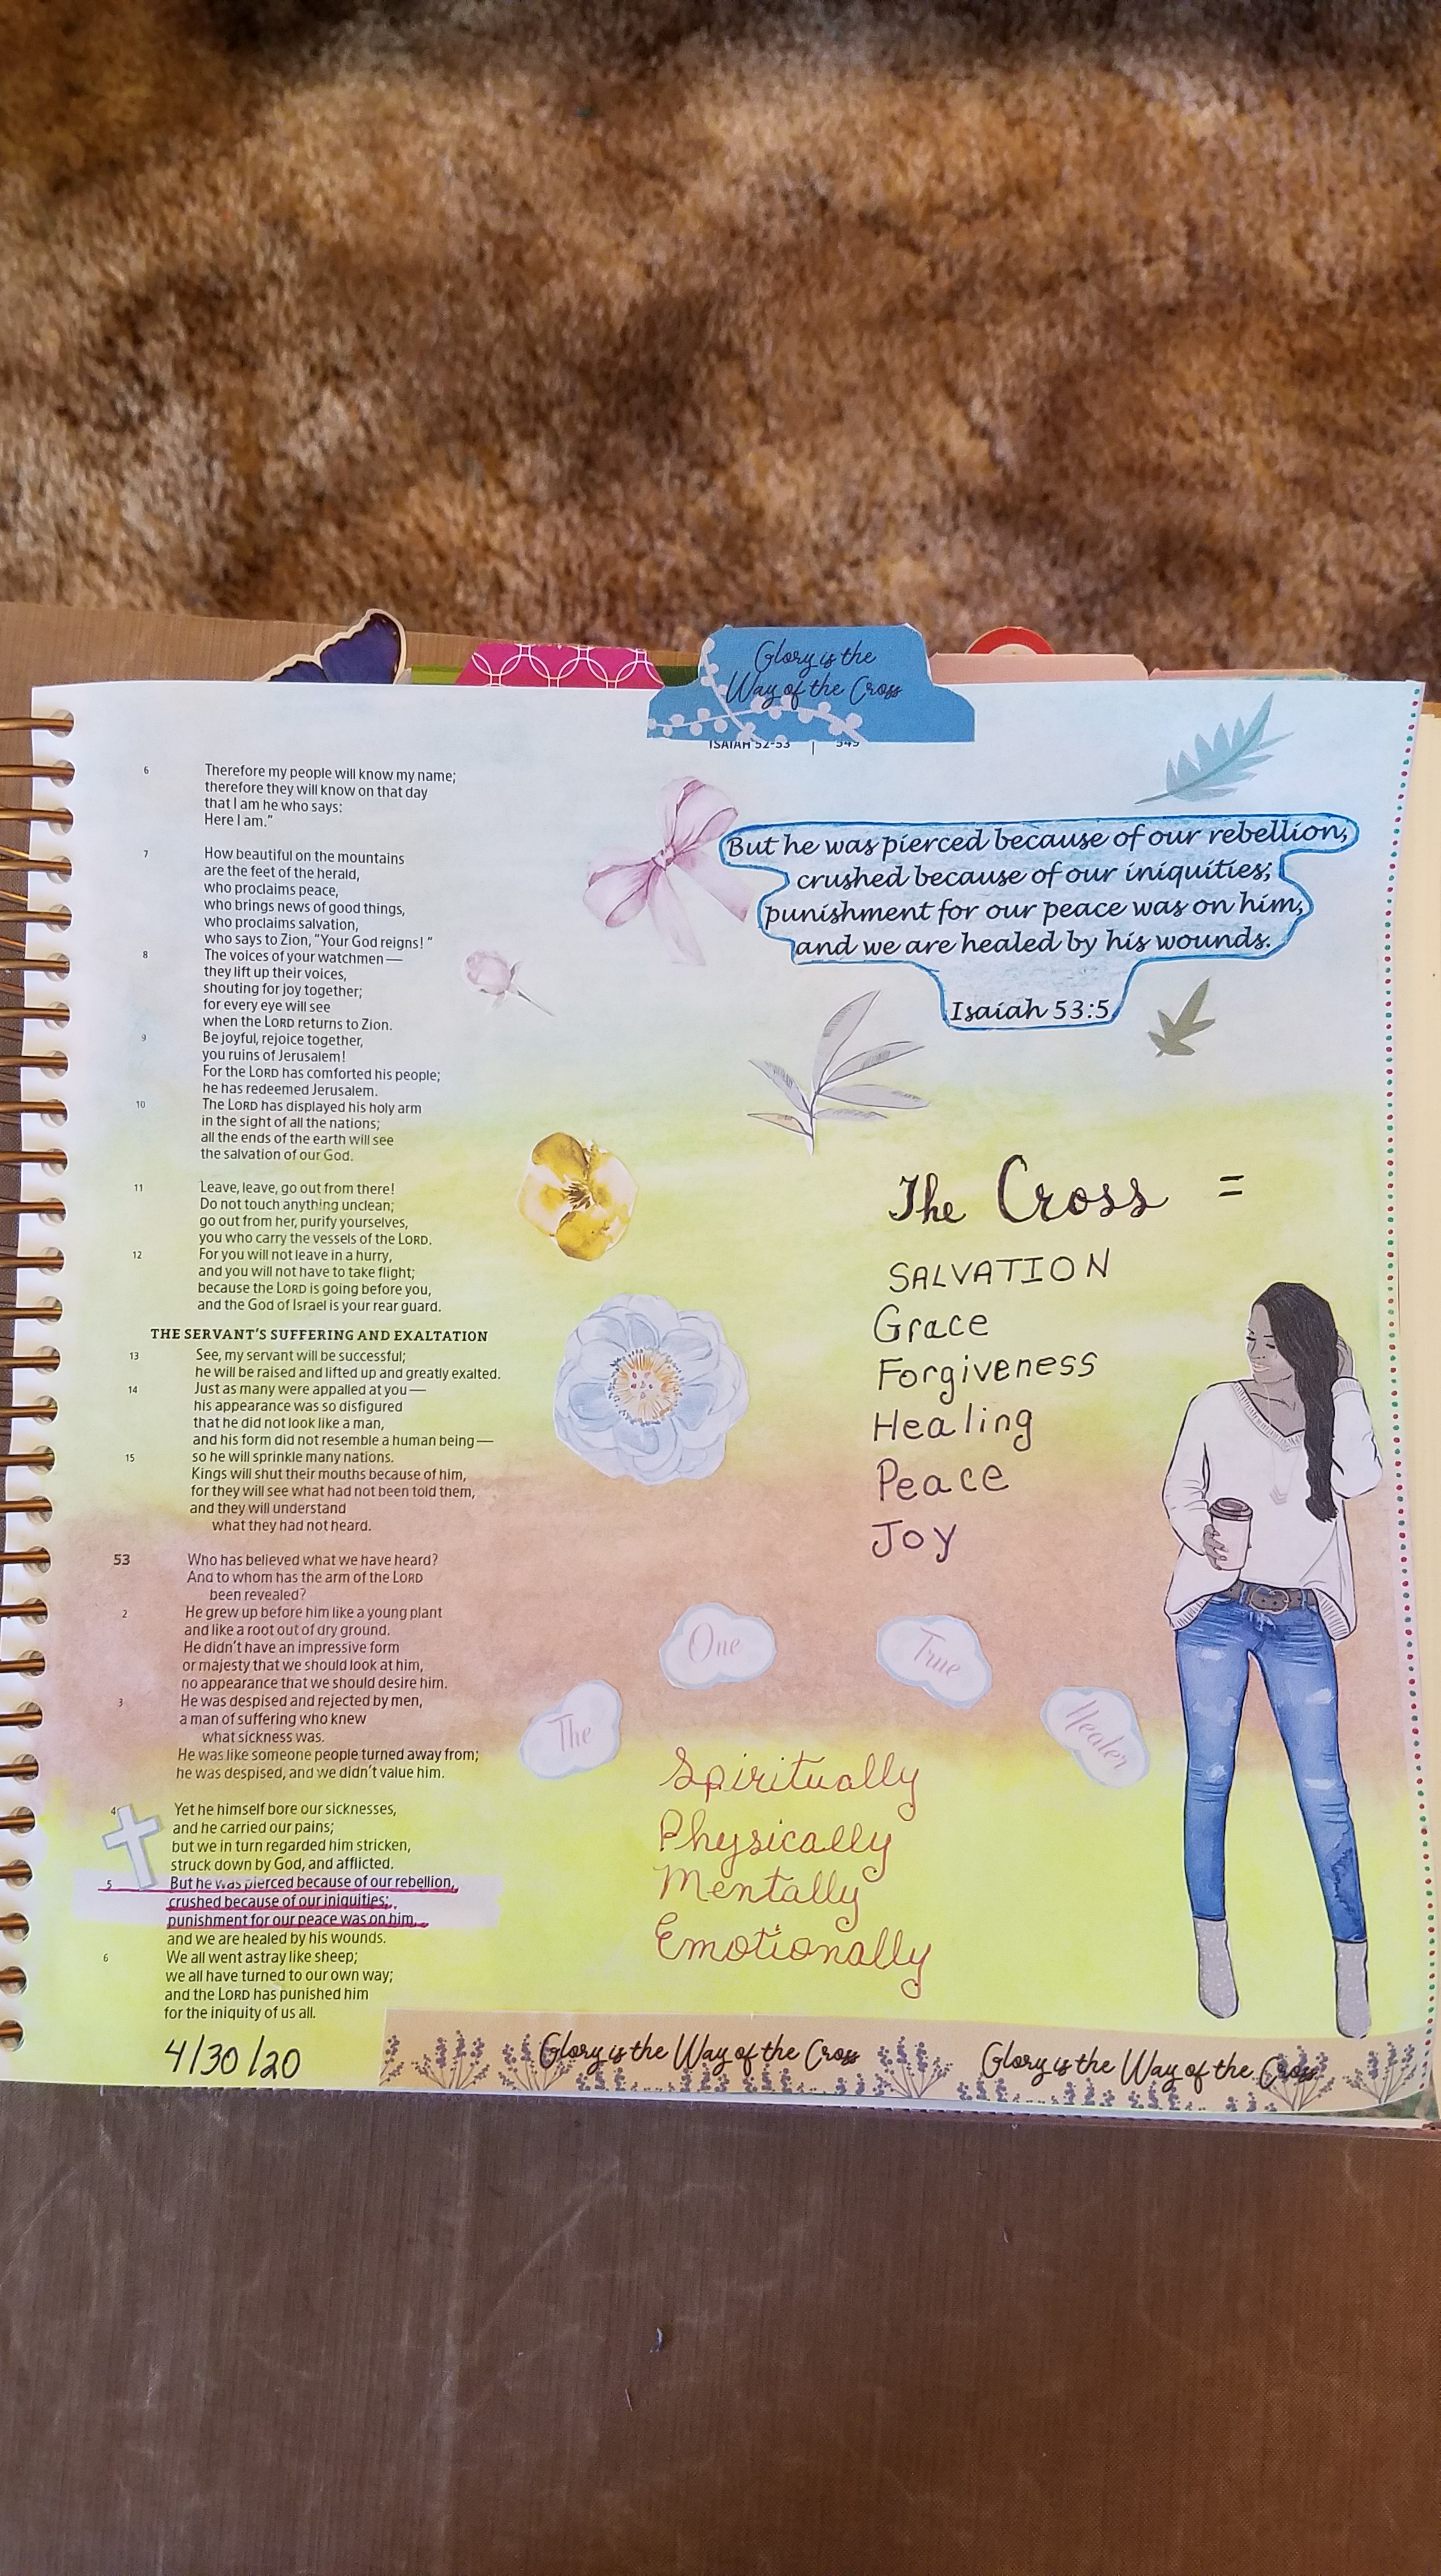 Glory is the
Way of the Cross
ISAIAH 52-53 | 549
6 Therefore my people will know my name;
therefore they will know on that day
that I am he who says:
Here I am.”
7 How beautiful on the mountains
are the feet of the herald,
who proclaims peace,
who brings news of good things,
who proclaims salvation,
who says to Zion, “Your God reigns! ”
8 The voices of your watchmen —
they lift up their voices,
shouting for joy together;
for every eye will see
when the LORD returns to Zion.
9 Be joyful, rejoice together,
you ruins of Jerusalem!
For the LORD has comforted his people;
he has redeemed Jerusalem.
10 The LORD has displayed his holy arm
in the sight of all the nations;
all the ends of the earth will see
the salvation of our God.
11 Leave, leave, go out from there!
Do not touch anything unclean;
go out from her, purify yourselves,
you who carry the vessels of the LORD.
12 For you will not leave in a hurry,
and you will not have to take flight;
because the LORD is going before you,
and the God of Israel is your rear guard.
THE SERVANT’S SUFFERING AND EXALTATION
13 See, my servant will be successful;
he will be raised and lifted up and greatly exalted.
14 Just as many were appalled at you —
his appearance was so disfigured
that he did not look like a man,
and his form did not resemble a human being —
15 so he will sprinkle many nations.
Kings will shut their mouths because of him,
for they will see what had not been told them,
and they will understand
what they had not heard.
53 Who has believed what we have heard?
And to whom has the arm of the LORD
been revealed?
2 He grew up before him like a young plant
and like a root out of dry ground.
He didn’t have an impressive form
or majesty that we should look at him,
no appearance that we should desire him.
3 He was despised and rejected by men,
a man of suffering who knew
what sickness was.
He was like someone people turned away from;
he was despised, and we didn’t value him.
4 Yet he himself bore our sicknesses,
and he carried our pains;
but we in turn regarded him stricken,
struck down by God, and afflicted.
5 But he was pierced because of our rebellion,
crushed because of our iniquities;
punishment for our peace was on him,
and we are healed by his wounds.
6 We all went astray like sheep;
we all have turned to our own way;
and the LORD has punished him
for the iniquity of us all.
4/30/20
But he was pierced because of our rebellion,
crushed because of our iniquities;
punishment for our peace was on him,
and we are healed by his wounds.
Isaiah 53:5
The Cross =
SALVATION
Grace
Forgiveness
Healing
Peace
Joy
The One True Healer
Spiritually
Physically
Mentally
Emotionally
Glory is the Way of the Cross Glory is the Way of the Cross